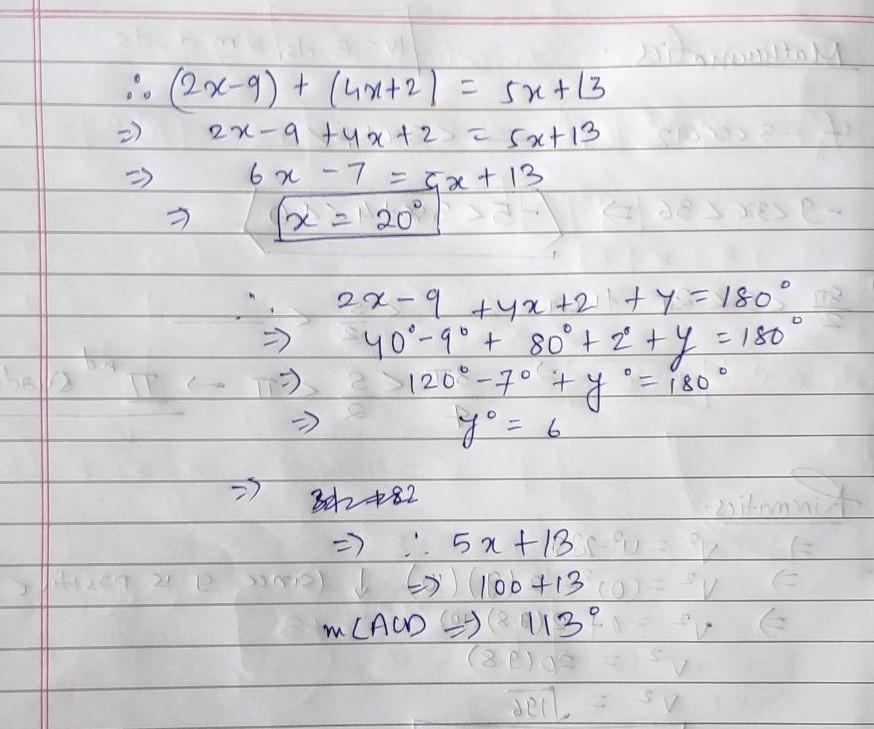 ∴ (2x-9) + (4x+2) = 5x+13
⇒ 2x-9 +4x+2 = 5x+13
⇒ 6x -7 = 5x+13
⇒ x = 20°
∴ 2x-9 +4x+2 + y = 180°
⇒ 40°-9°+ 80°+2°+y = 180°
⇒ 120°-7°+y°=180°
⇒ y° = 6
⇒
⇒ ∴ 5x+13
⇒ 100+13
m∠ACD ⇒ 113°